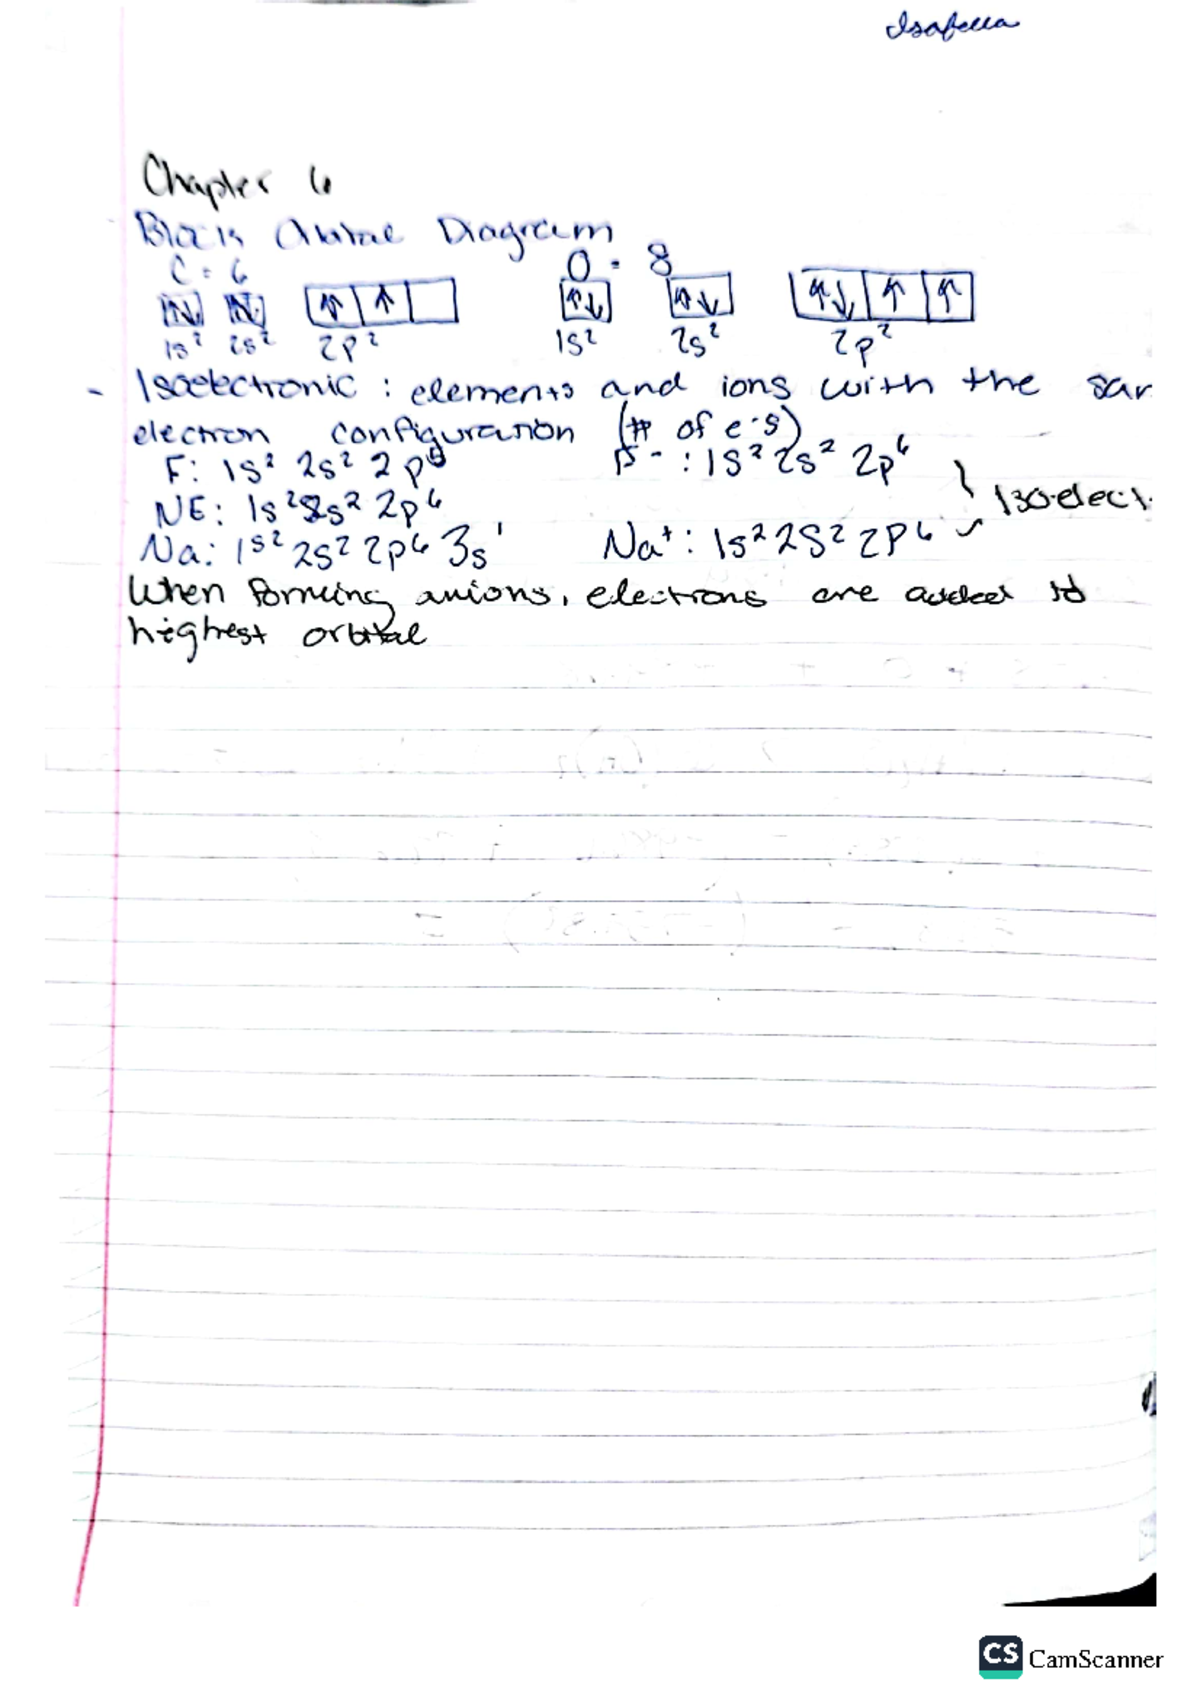 Isabella
Chapter 6
Block Orbital Diagram
C = 6 O = 8
1s² 2s² 2p² 1s² 2s² 2p²
- Isoelectronic : elements and ions with the sar
electron configuration (# of e-s)
F: 1s² 2s² 2p⁵ F- : 1s² 2s² 2p⁶
NE: 1s² 2s² 2p⁶ Isoelect
Na: 1s² 2s² 2p⁶ 3s¹ Na⁺: 1s² 2s² 2p⁶
When forming anions, electrons are added to
highest orbital
CS CamScanner